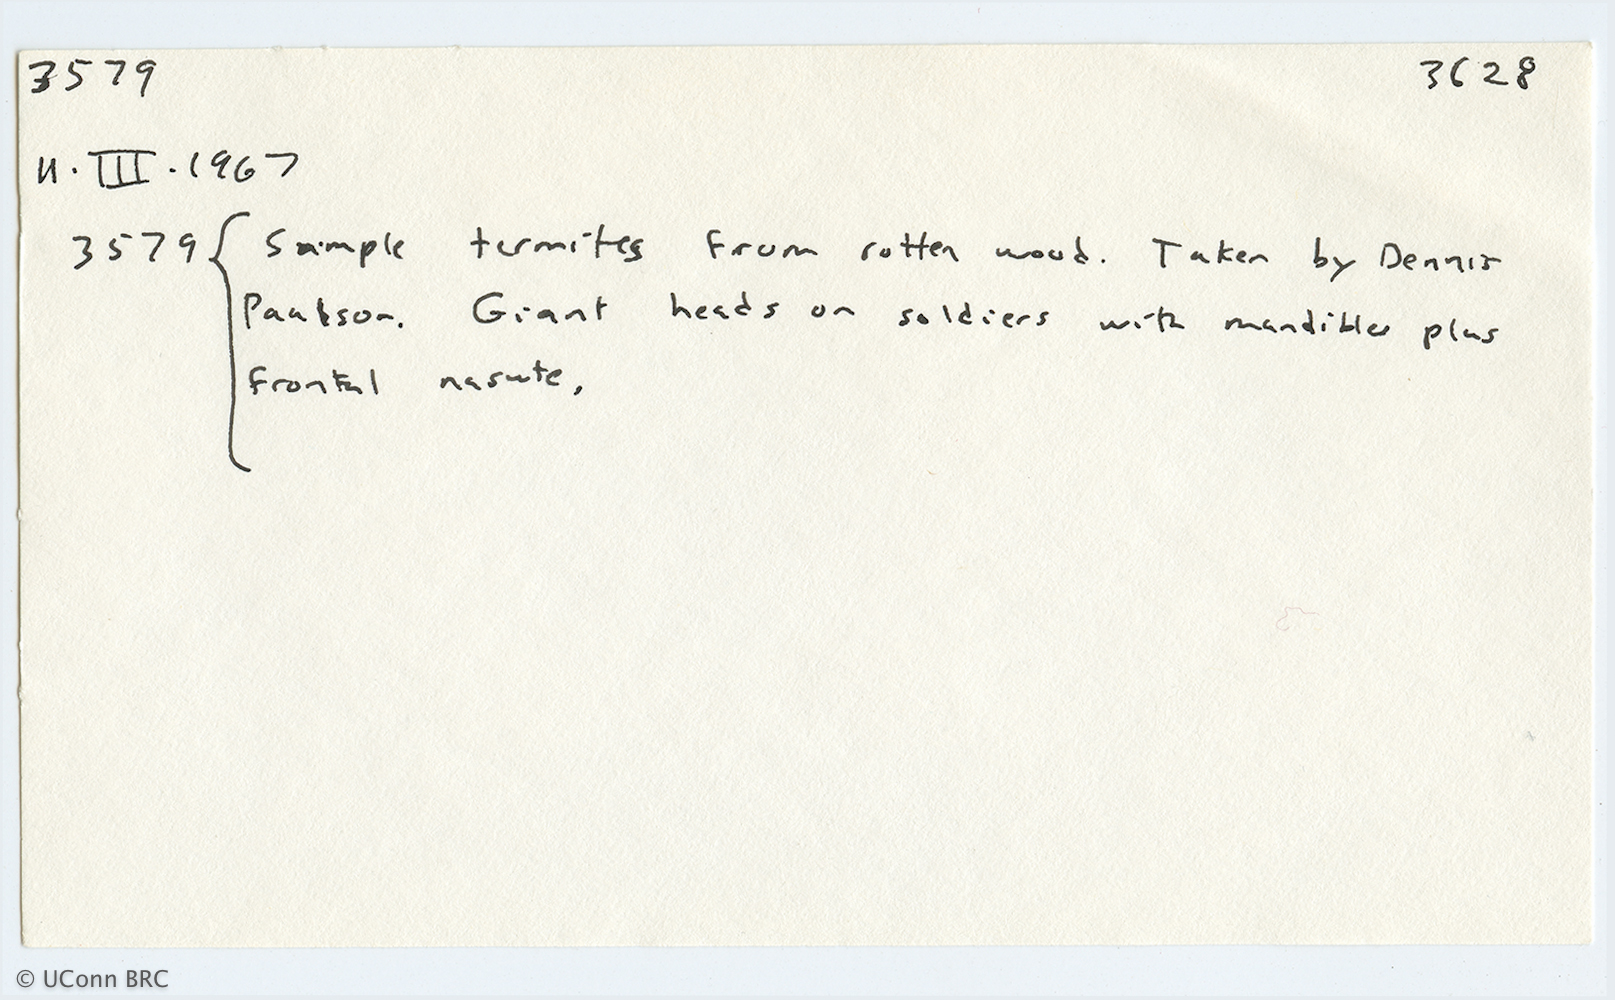 3579 3628
11 · III · 1967
3579 { Sample termites from rotten wood. Taken by Dennis
Paulson. Giant heads on soldiers with mandibles plus
frontal nasute.
© UConn BRC